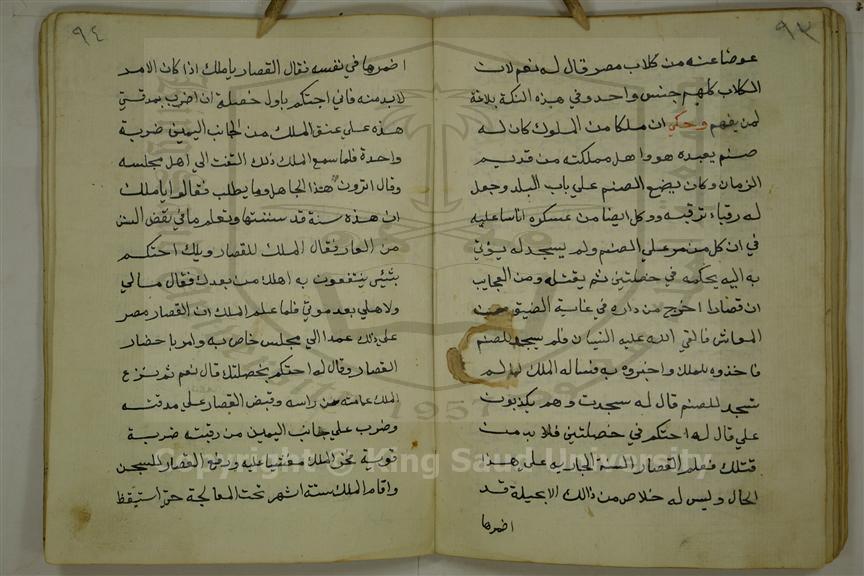 ٩٣
عوضا عنه من كلاب مصر قال له نعم لان
الكلاب كلهم جنس واحد وفي هذه النكتة بلاغة
لمن يفهم وحكي ان ملكا من الملوك كان له
صنم يعبده هو واهل مملكته من قديم
الزمان وكان يضع الصنم علي باب البلد وجعل
له رقباء ترقبه ووكل ايضا من عسكره اناسا عليه
في ان كل من مر علي الصنم ولم يسجد له يؤتي
به اليه يحكمه في خصلتين ثم يقتله ومن العجايب
ان قصارا اخرج من داره في غاية الضيق من
المعاش فالقي الله عليه النسيان فلم يسجد للصنم
فاخذوه للملك واخبروه به فساله الملك لما لم
تسجد للصنم قال له سجدت وهم يكذبون
علي قال له احتكم في خصلتين فلا بد من
قتلك فعلم القصار السنة الجاريه علي هذا
الحال وليس له خلاص من ذالك الا بحيلة قد
اضمرها
٩٤
اضمرها في نفسه فقال القصار يا ملك اذا كان الامر
لابد منه فاني احتكم باول خصلة ان اضرب بمدقتي
هذه علي عنق الملك من الجانب اليمين ضربة
واحدة فلما سمع الملك ذلك التفت الي اهل مجلسه
وقال اترون هذا الجاهل وما يطلب فقالوا ياملك
ان هذه سنة قد سننتها وتعلم ما في نقض السنن
من العار فقال الملك للقصار ويلك احتكم
بشئ ينتفعون به اهلك من بعدك فقال مالي
ولاهلي بعد موتي فلما علم الملك ان القصار مصر
علي ذلك عمد الي مجلس خاص به وامر باحضار
القصار وقال له احتكم بخصلتك قال نعم ثم نزع
الملك عمامته من راسه وقبض القصار علي مدقته
وضرب علي جانب اليمين من رقبته ضربة
قوية فخر الملك مغشيا عليه ورفع القصار للسجن
واقام الملك ستة اشهر تحت المعالجة حتي استيقظ
Copyright © King Saud University
1957